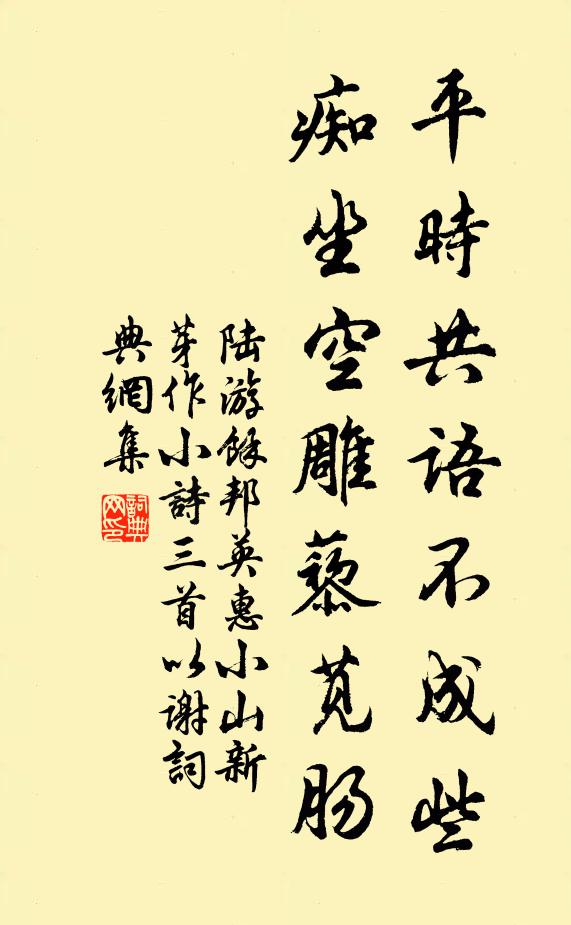 平時共語不成些
痴坐空雕藜莧肠
陆游餘邦英惠小山新
芽作小詩三首以谢詞
典網集
詞典網印